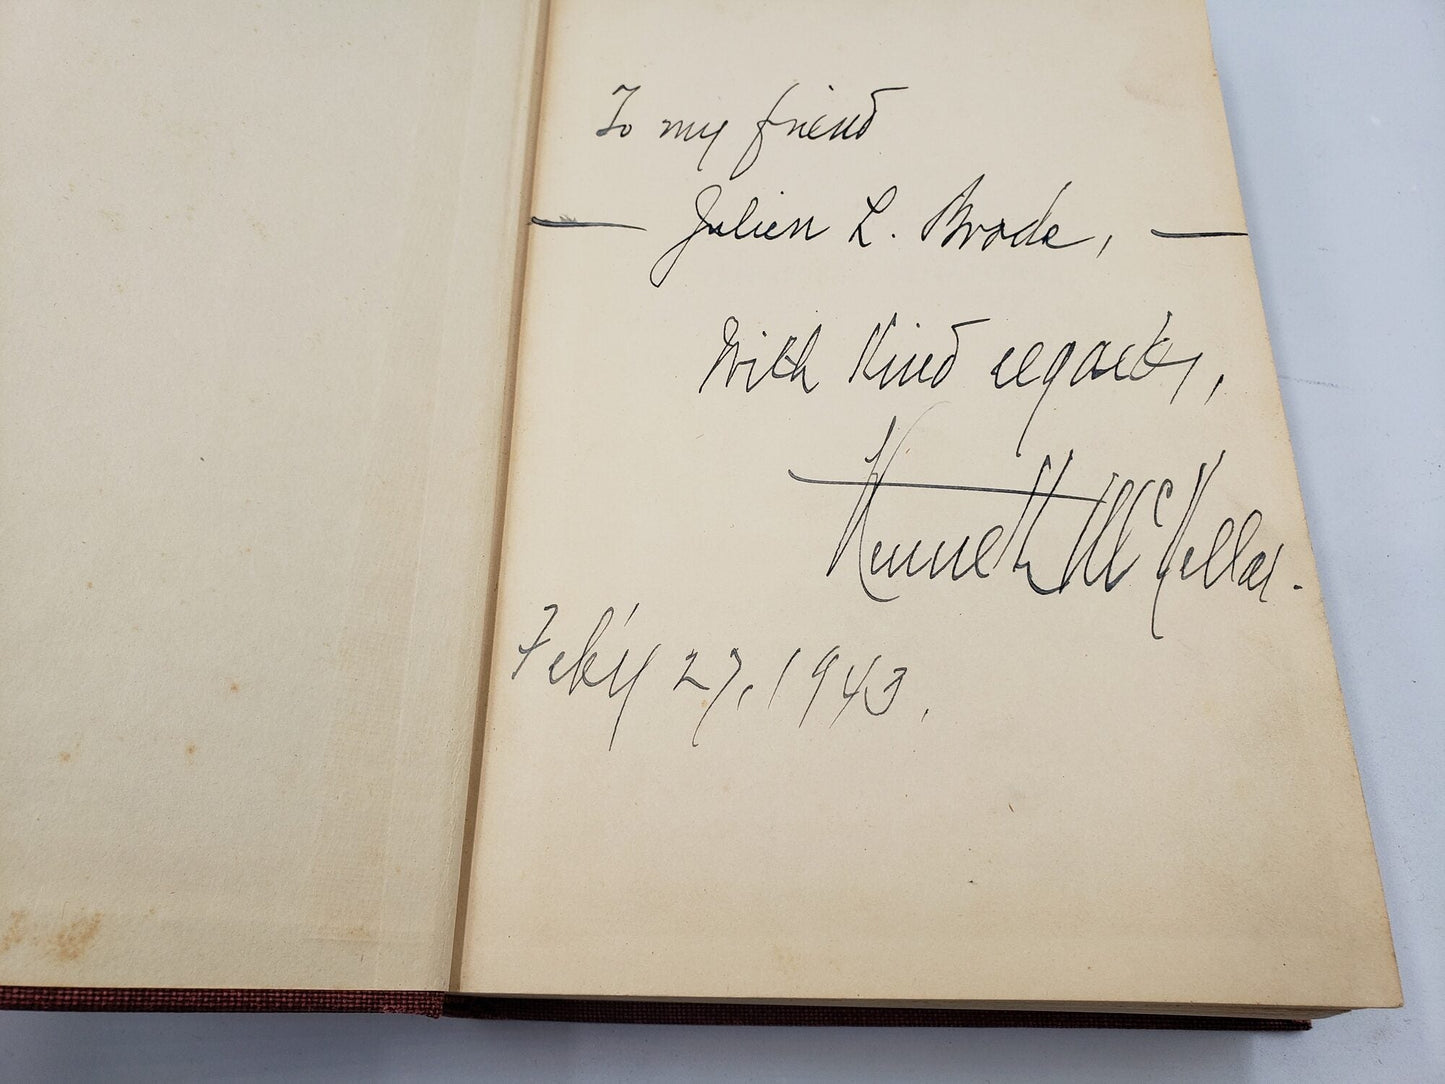 To my friend
— Julien L. Brode, —
With Kind regards,
Kenneth McKellar.
Feb'y 27, 1943.